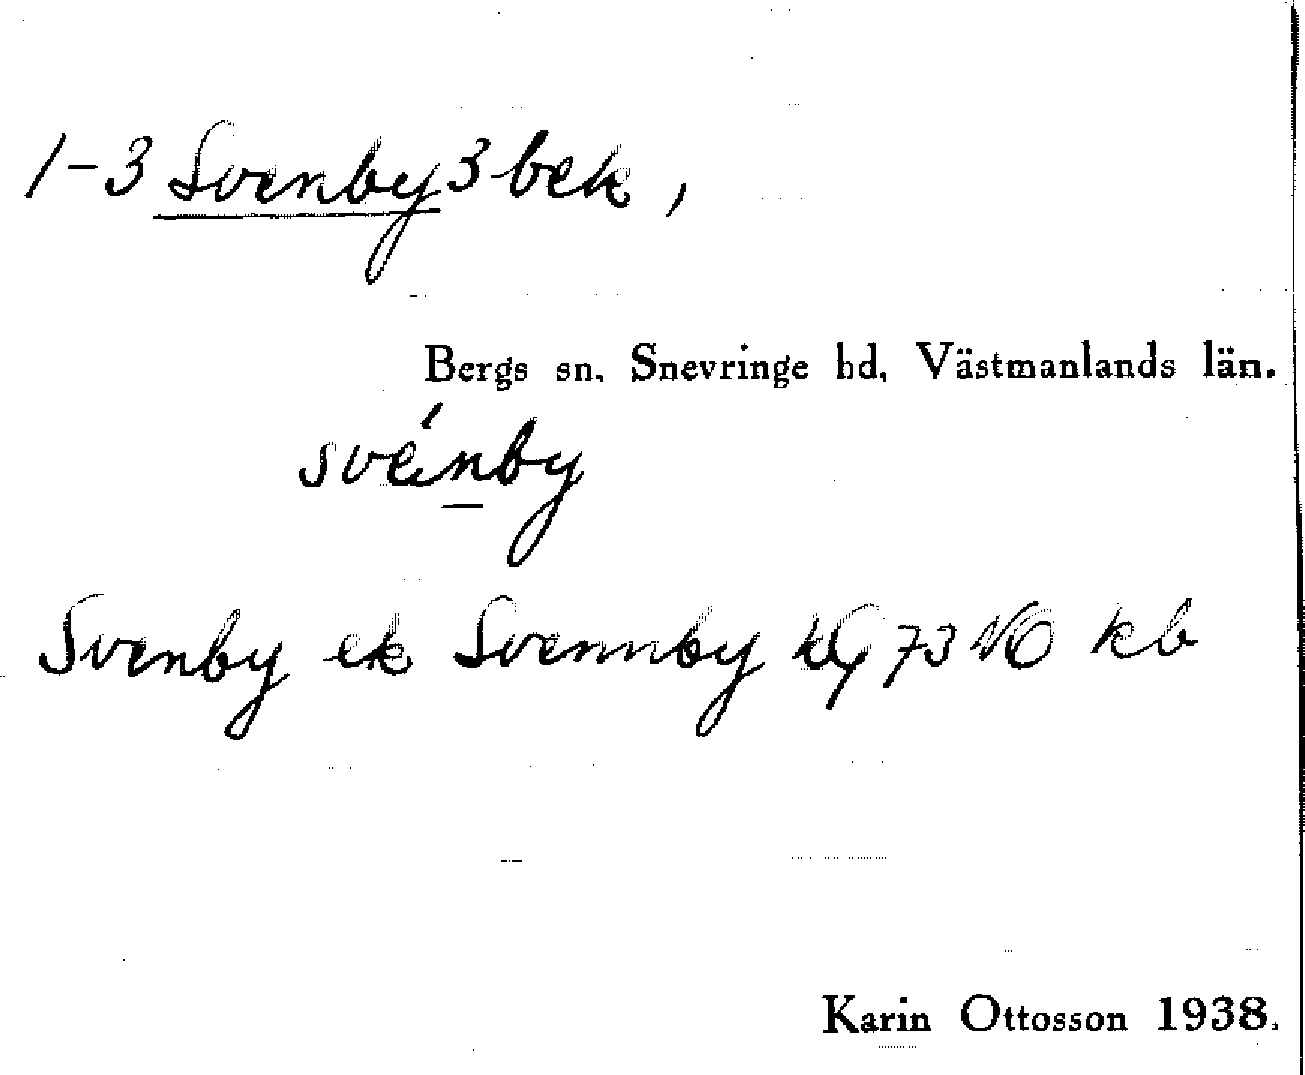 1-3 Svenby 3 bek,
Bergs sn, Snevringe hd, Västmanlands län.
svénby
Svenby ek Svennby 73 kb
Karin Ottosson 1938.